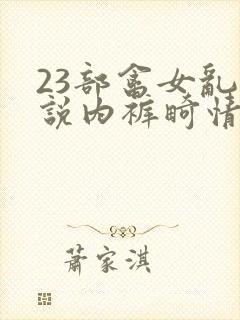 23部畜女亂
說内裤畸情
蕭家淇